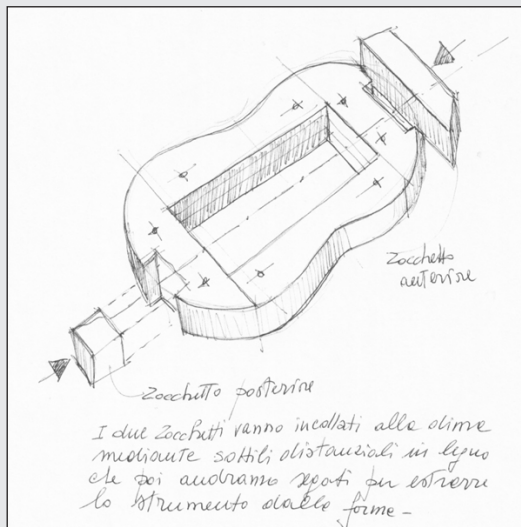 Zocchetto
anteriore
Zocchetto posteriore
I due Zocchetti vanno incollati alla dima
mediante sottili distanziali in legno
che poi andranno segati per estrarre
lo strumento dalla forma -